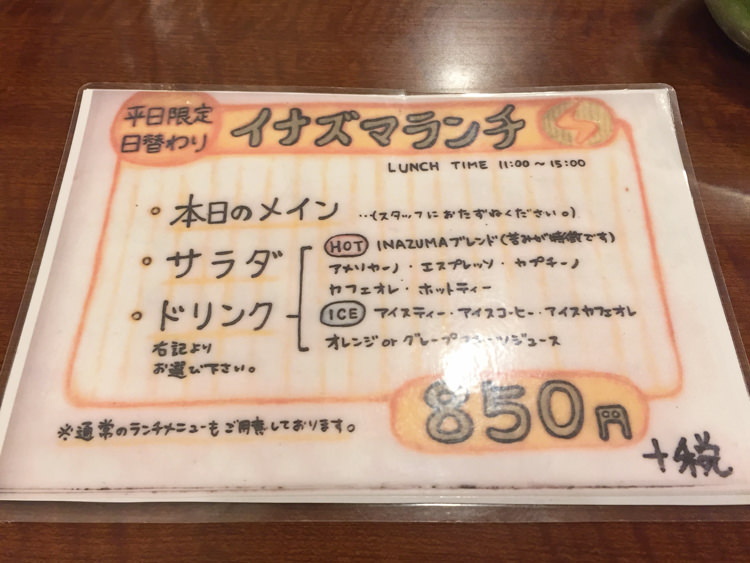 平日限定
日替わり
イナズマランチ
LUNCH TIME 11:00～15:00
・本日のメイン …(スタッフにおたずねください。)
・サラダ
・ドリンク
右記より
お選び下さい。
HOT INAZUMAブレンド(苦みが特徴です)
アメリカーノ・エスプレッソ・カプチーノ
カフェオレ・ホットティー
ICE アイスティー・アイスコーヒー・アイスカフェオレ
オレンジ or グレープフルーツジュース
850円
+税
※通常のランチメニューもご用意しております。